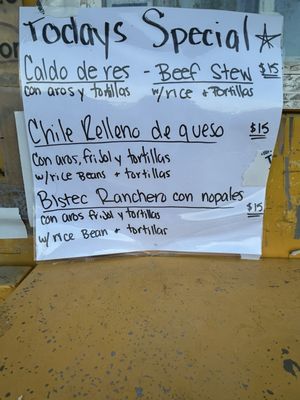 Todays Special
Caldo de res - Beef Stew $15
con aros y tortillas w/rice + Tortillas
Chile Relleno de queso $15
con aros, frijol y tortillas
w/rice Beans + tortillas
Bistec Ranchero con nopales $15
con aros frijol y tortillas
w/rice Bean + tortillas